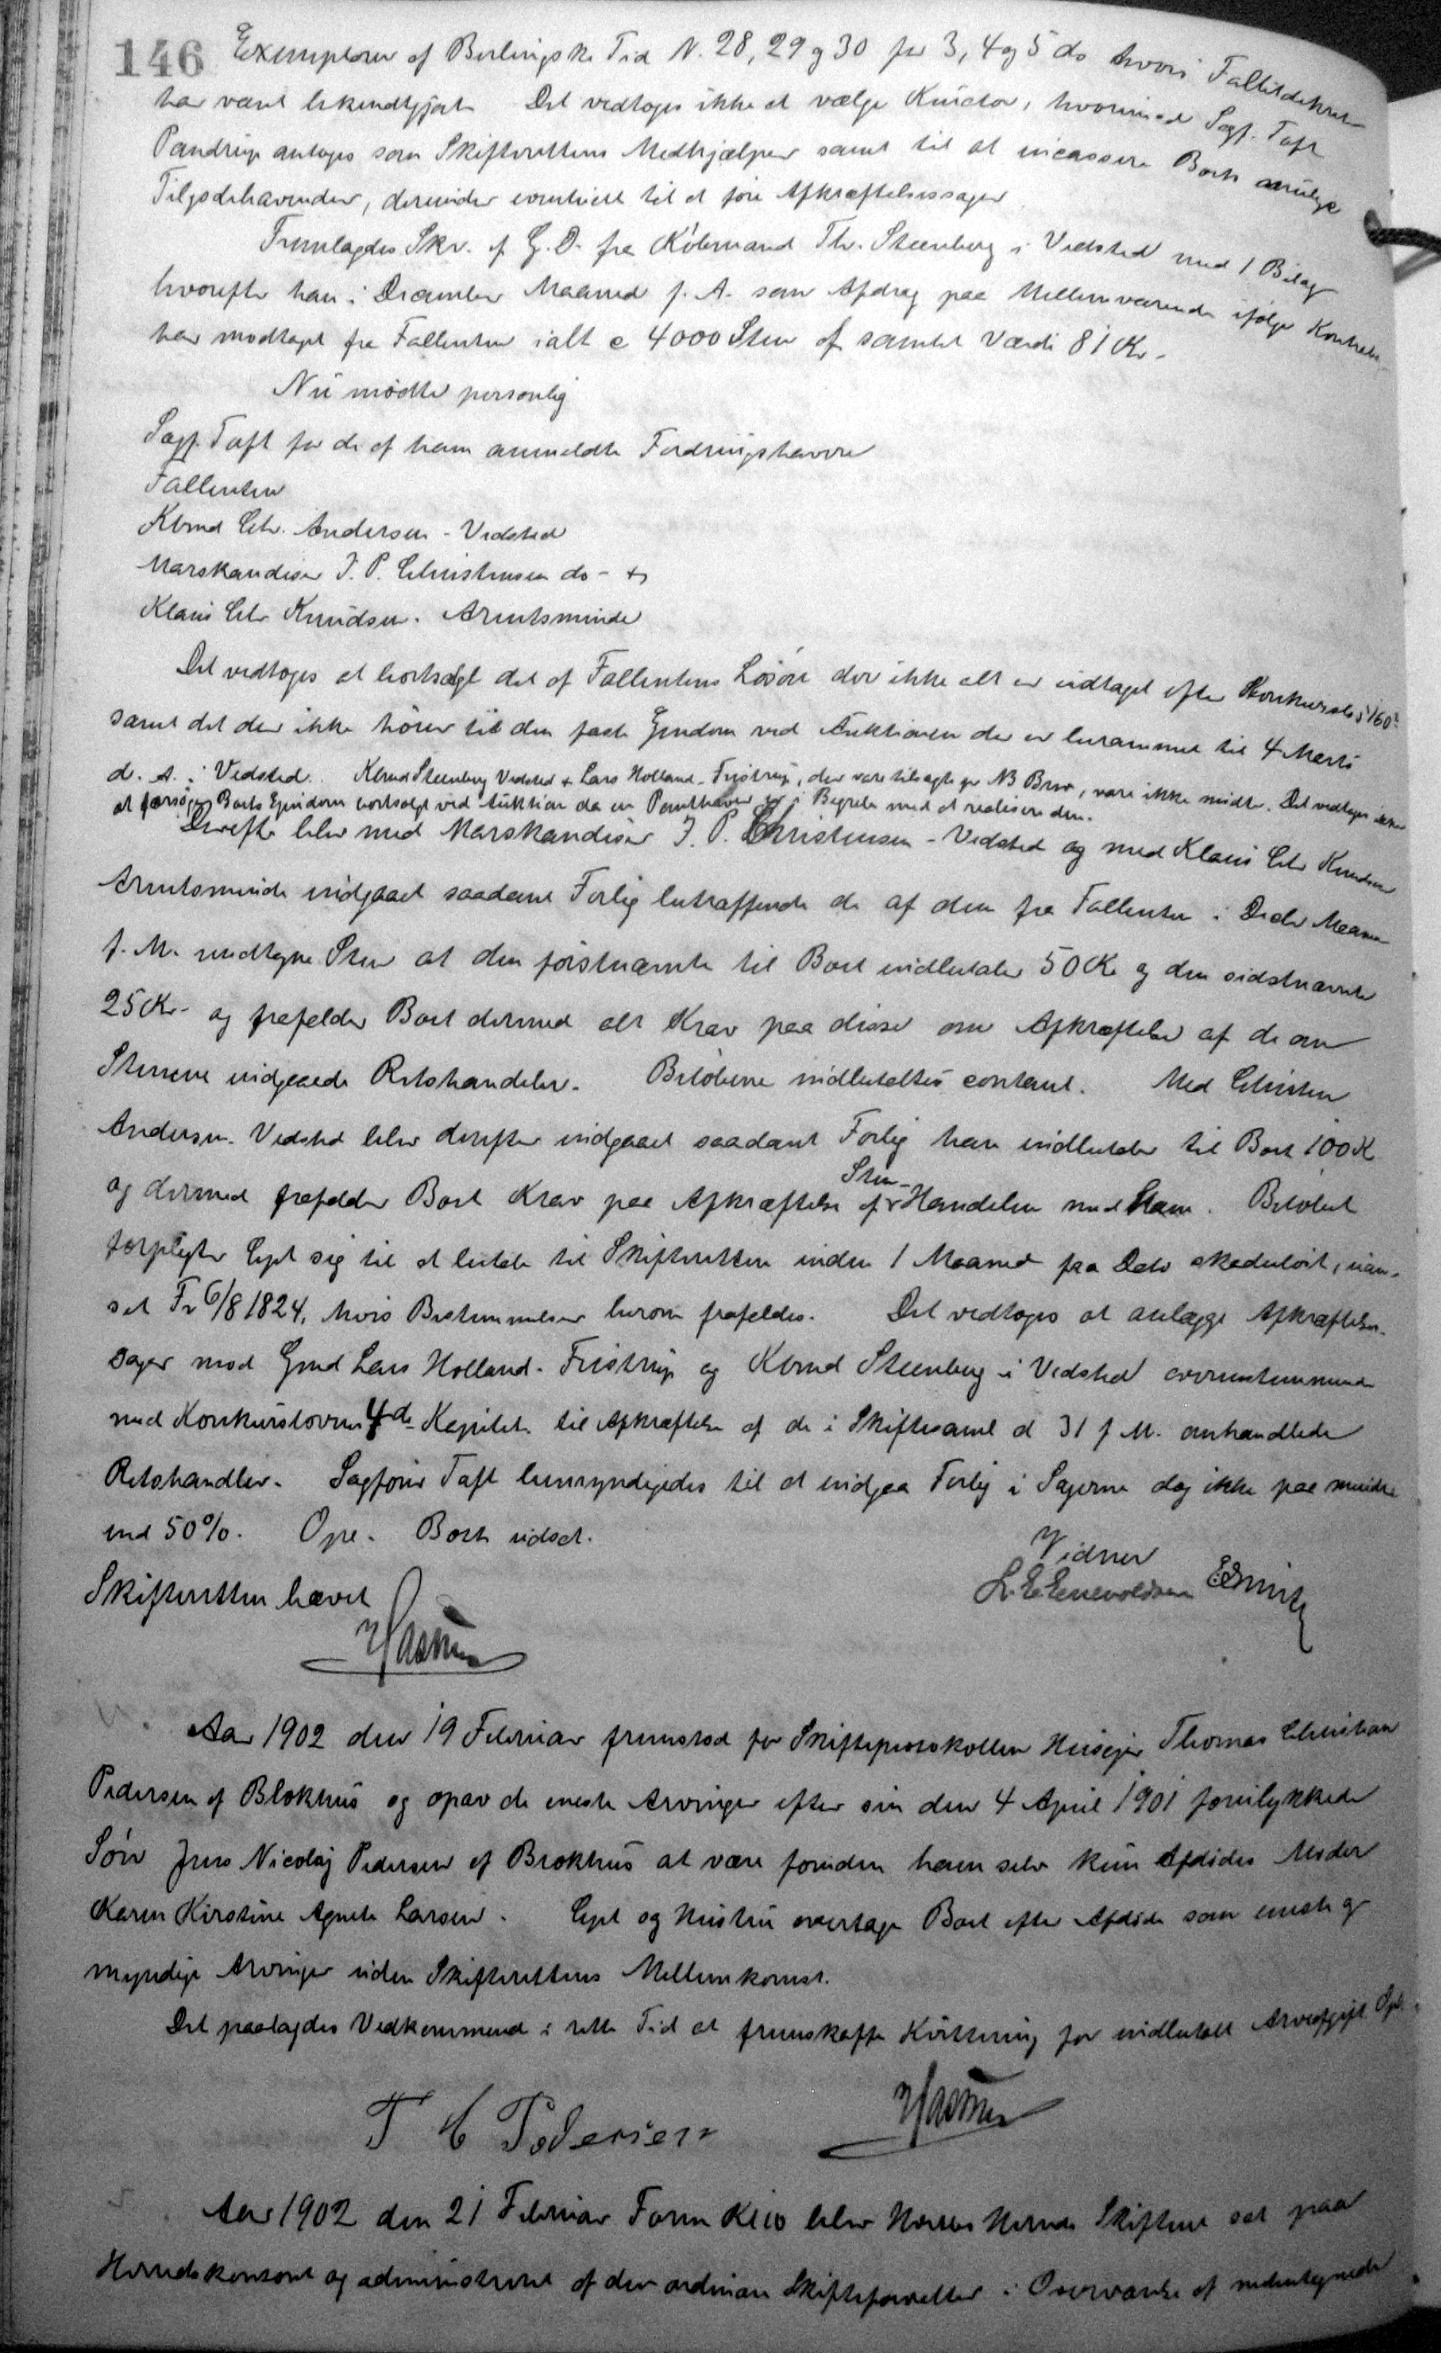 146 Exemplarer af Berlingske Tid N. 28, 29 og 30 for 3, 4 og 5 ds hvori Fallitdekret
har været bekendtgjort Det vedtoges ikke at vælge Kurator, hvorimod Sagf. Taft
Pandrup antoges som Skifterettens Medhjælper samt til at incassere Boets mulige
Tilgodehavender, derunder eventuelt til at føre Afkræftelsessager
Fremlagdes Skr. af G. D. fra Købmand Th. Steenberg i Vedsted med 1 Bilag
hvorefter han i December Maaned f. A. som Afdrag paa Mellemværende ifølge Kontrakt
har modtaget fra Fallenten ialt c 4000 Sten af samlet Værdi 81 Kr.
Nu mødte personlig
Sagf. Taft for de af ham anmeldte Fordringshavere
Fallenten
Kbmd Chr. Andersen - Vedsted
Marskandiser J. P. Christensen ds - &
Klaus Chr Knudsen. Arentsminde
Det vedtoges at bortsælge det af Fallentens Løsøre der ikke alt er udtaget efter Konkursls § 160
samt det der ikke hører til den faste Ejendom ved Auktionen der er berammet til 4 Marts
d. A. i Vedsted. Kbmd Steenberg Vedsted & Lars Holland - Fristrup, der vare tilsagte pr NB Brev, vare ikke mødte. Det vedtoges ikke
at forsøge Boets Ejendom bortsolgt ved Auktion da en Panthaver er i Begreb med at realisere den.
Derefter blev med Marskandiser J. P. Christensen - Vedsted og med Klaus Chr Knudsen
Arentsminde indgaaet saadant Forlig betræffende de af dem fra Fallenten i Decbr Maaned
f. A. modtagne Sten at den førstnævnte til Boet indbetaler 50 Kr og den sidstnævnte
25 Kr - og frafalder Boet dermed alt Krav paa disse om Afkræftelse af de om
Stenene indgaaede Retshandeler. Beløbene indbetaltes contant. Med Christen
Andersen. Vedsted blev derefter indgaaet saadant Forlig han indbetaler til Boet 100 Kr
og dermed frafalder Boet Krav paa Afkræftelse af Sten-Handelen med ham. Beløbet
forpligter Cpt sig til at betale til Skifteretten inden 1 Maaned fra Dato skadesløst, uan-
set Fr 6/8 1824, hvis Bestemmelser herom frafaldes. Det vedtoges at anlægge Afkræftelses-
sager mod Gmd Lars Holland - Fristrup og Kbmd Steenberg i Vedsted overensstemmende
med Konkurslovens 4de Kapitel til Afkræftelse af de i Skiftesaml d 31 f M. omhandlede
Retshandler. Sagfører Taft bemyndigedes til at indgaa Forlig i Sagerne dog ikke paa mindre
end 50%. Opl. Boet udsat.
Vidner
Skifteretten hævet L. E. Enevoldsen
Aar 1902 den 19 Februar fremstod for Skifteprotokollen Husejer Thomas Christian
Pedersen af Blokhus og opgav de eneste Arvinger efter sin den 4 April 1901 forulykkede
Søn Jens Nicolaj Pedersen af Blokhus at være foruden ham selv kun Afdødes Moder
Karen Kirstine Agnete Larsen. Cpt og Hustru overtage Boet efter Afdøde som eneste og
myndige Arvinger uden Skifterettens Mellemkomst.
Det paalagdes Vedkommende i rette Tid at fremskaffe Kvittering for indbetalt Arveafgift Opl.
T C Pedersen
Aar 1902 den 21 Februar Form Kl 10 blev Hvetbo Herreds Skifteret sat paa
Herredskontoret og administreret af den ordinære Skifteforvalter i Overværelse af undertegnede